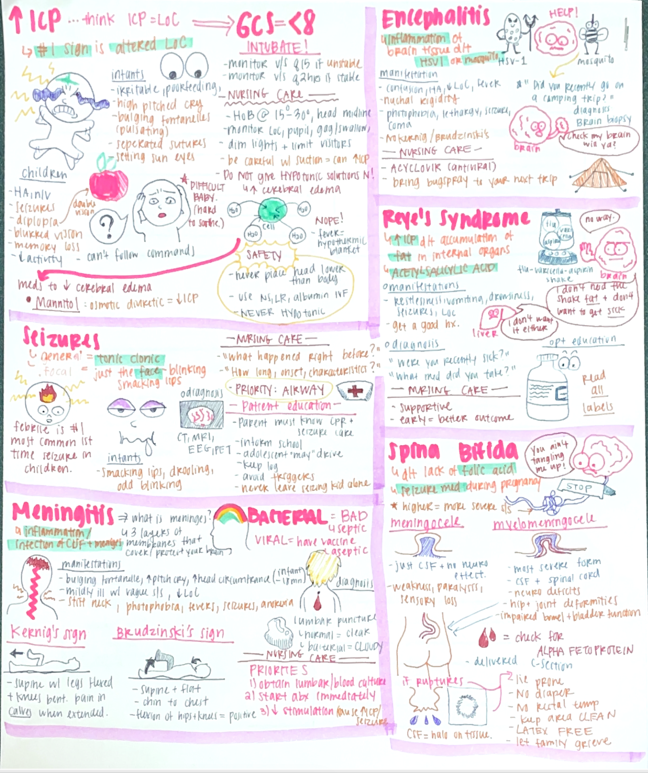 ↑ICP ...think ICP=LOC → GCS=<8
↳ #1 sign is altered LOC
INTUBATE!
- monitor v/s q15 if unstable
- monitor v/s q2hrs is stable
infants
- irritable, poor feeding,
- high pitched cry
- bulging fontanelles
(pulsating)
- seperated sutures
- setting sun eyes
- NURSING CARE -
- HOB @ 15-30°, head midline
- monitor LOC, pupil, gag/swallow,
- dim lights + limit visitors
- be careful w/ suction = can ↑ICP
Do not give HYPOtonic solutions N!
↳↑ cerebral edema
children
- HA, N/V
- seizures
- diplopia
- blurred vision
- memory loss
- ↓activity
double vision
?
* DIFFICULT
BABY.
(hard
to soothe)
- can't follow commands
H2O
H2O
H2O
H2O
cell
NOPE!
- fever-
hypothermic
blanket
SAFETY
- never place head lower
than body
- use NS, LR, albumin IVF
- NEVER HYPOTONIC
meds to ↓ cerebral edema
• Mannitol = osmotic diuretic = ↓ICP
Seizures
↳ General = tonic clonic
Focal = just the face, blinking
smacking lips
febrile is #1
most common 1st
time seizure in
children.
infants
- smacking lips, drooling,
odd blinking
diagnosis
CT, MRI,
EEG, PET
- NURSING CARE -
- "What happened right before?"
- "How long, onset, characteristics?"
- PRIORITY: AIRWAY
- Patient education -
- Parent must know CPR +
seizure care
- inform school
- adolescent "may" drive
- keep log
- avoid triggers
- never leave seizing kid alone
Meningitis ⇒ what is meninges?
↳ 3 layers of
membranes that
cover/protect your brain
inflammation/
infection of CSF + meninges
BACTERIAL = BAD
↳ septic
VIRAL = have vaccine
aseptic
manifestations
- bulging fontanelle, ↑pitch cry, ↑head circumference
- mildly ill w/ vague s/s, ↓LOC
- stiff neck, photophobia, fevers, seizures, anorexia
diagnosis
lumbar puncture
- normal = clear
- bacterial = CLOUDY
Kernig's sign
- supine w/ legs flexed
+ knees bent. pain in
calves when extended.
Brudzinski's sign
- supine + flat
- chin to chest
- flexion of hips + knees = positive
- NURSING CARE -
PRIORITIES
1) obtain lumbar/blood culture
2) start abx immediately
3) ↓ stimulation (cause ↑ICP/
seizure)
Encephalitis
↳ inflammation of
brain tissue d/t
HSV1 or mosquito
HSV-1
HELP!
mosquito
manifestation
- confusion, HA, ↓LOC, fever
- nuchal rigidity
- photophobia, lethargy, seizure,
coma
- Kernig/Brudzinski's
* "Did you recently go on
a camping trip?"
diagnosis
Brain biopsy
brain
Check my brain
will ya?
- NURSING CARE -
- ACYCLOVIR (antiviral)
- bring bugspray to your next trip
Reye's Syndrome
↳ ↑ICP d/t accumulation of
fat in internal organs
↳ ACETYLSALICYLIC ACID
manifestations
- restlessness, vomiting, drowsiness,
seizures, LOC
- get a good hx.
no way.
brain
I don't need the
shake fat + don't
want to get sick
I don't want
it either
liver
diagnosis
- "Were you recently sick?"
- "What did you take?"
- NURSING CARE -
- supportive
- early = better outcome
pt education
READ
all
labels
Spina Bifida
↳ d/t lack of folic acid
↳ seizure med during pregnancy
* higher = more severe s/s
You ain't
tangling
me up!
STOP
meningocele
- just CSF + no neuro
effect.
- weakness, paralysis,
sensory loss
myelomeningocele
- most severe form
- CSF + spinal cord
- neuro deficits
- hip + joint deformities
- impaired bowel + bladder function
= check for
ALPHA FETOPROTEIN
- delivered C-section
if ruptures
CSF = halo on tissue.
- lie prone
- No diaper
- No rectal temp
- keep area CLEAN
- LATEX FREE
- let family grieve